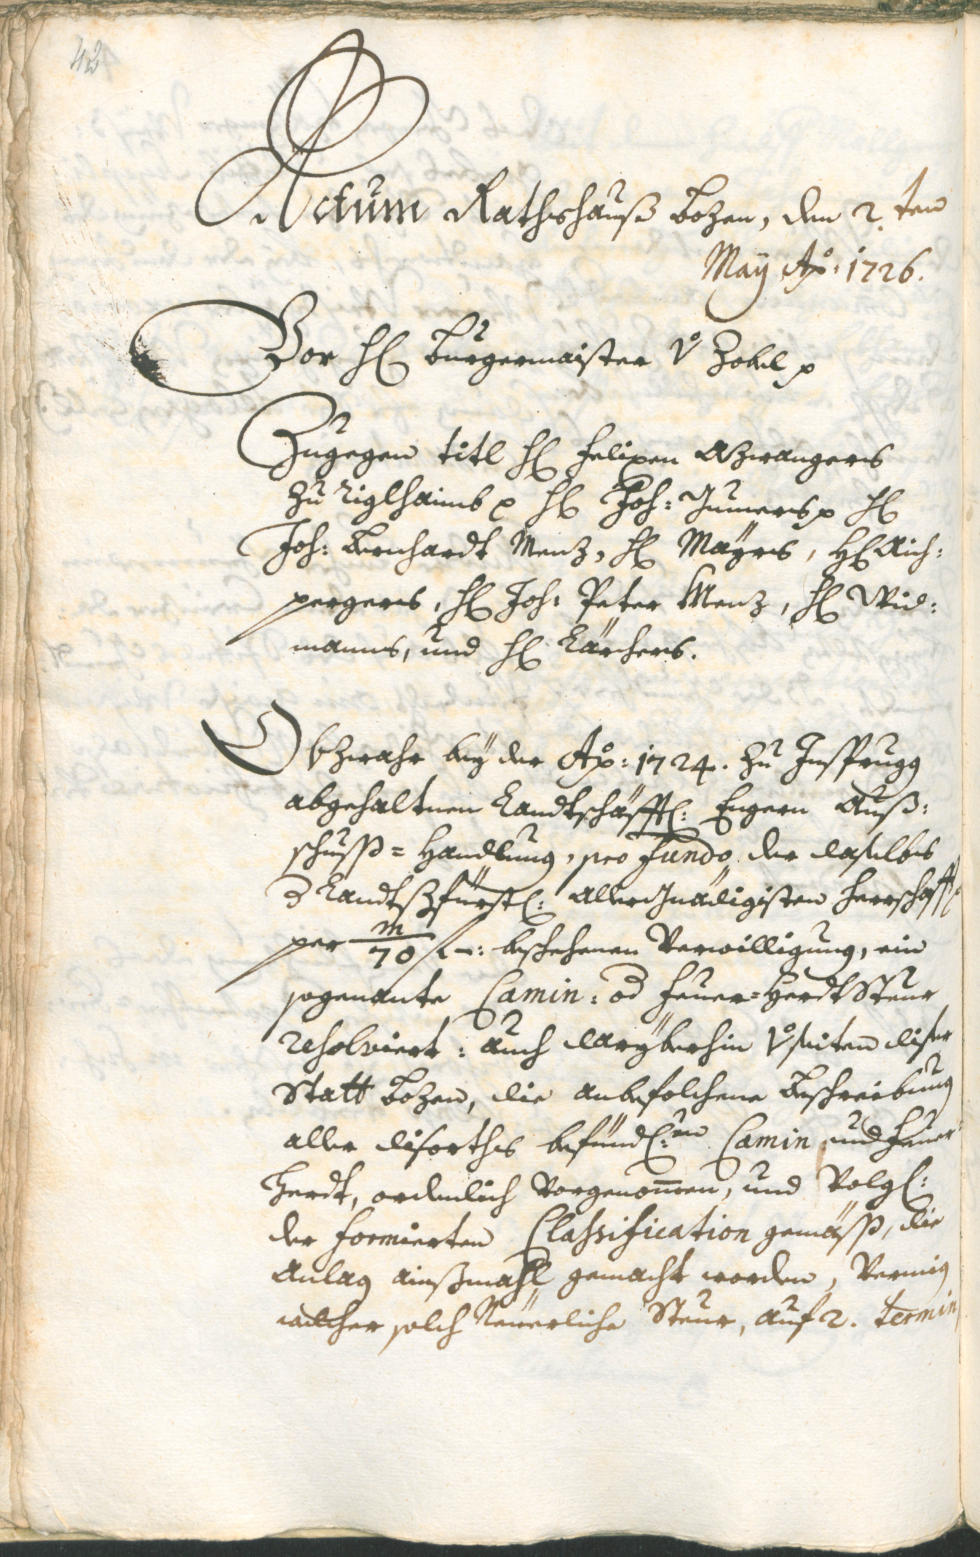 42
Actum Rathshauß Bozen, den 2.ten
May Ao: 1726.
Vor H: Burgermaister v Zobel p
Zugegen titl H: Felixen Azwangers
zu Siglhaimb p H: Joh: Gumers p H:
Joh: Bernhardt Menz, H: Mayrs, H: Aich:
pergers, H: Joh: Peter Menz, H: Wid:
manns, und H: Kärchers.
Obzwahr bey der Ao: 1724. zu Insprugg
abgehaltnen Landtschäfftl: Engern Auß:
schuss= Handlung, pro fundo der daselbs
d Landtßfürstl: allergnädigisten Herrschafft
per m/70 f –: beschehenen Verwilligung, ein
sogenante Camin: od Feuer=Herdt Steur
resolviert: auch daryberhin vseiten diser
Statt Bozen, die anbefolchene Beschreibung
aller diserths befündl:en Camin und Feuer
Herdt, ordenlich vorgenommen, und volgl:
der formierten Classification gemäss, die
Anlag ainßmahl gemacht worden, vermig
welcher solch Neuerliche Steur, auf 2. termin